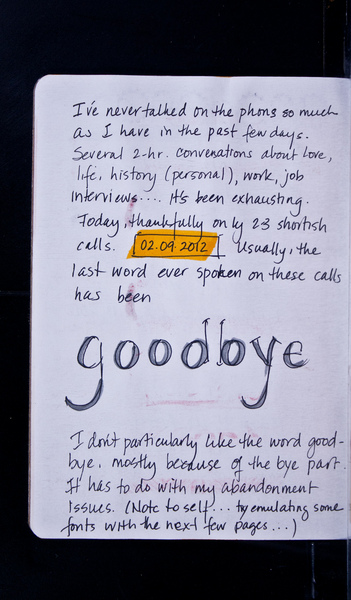 I've never talked on the phone so much
as I have in the past few days.
Several 2-hr. conversations about love,
life, history (personal), work, job
interviews.... it's been exhausting.
Today, thankfully only 2-3 shortish
calls. 02.09.2012 Usually, the
last word ever spoken on these calls
has been
goodbye
I don't particularly like the word good-
bye, mostly because of the bye part.
It has to do with my abandonment
issues. (Note to self... try emulating some
fonts with the next few pages...)